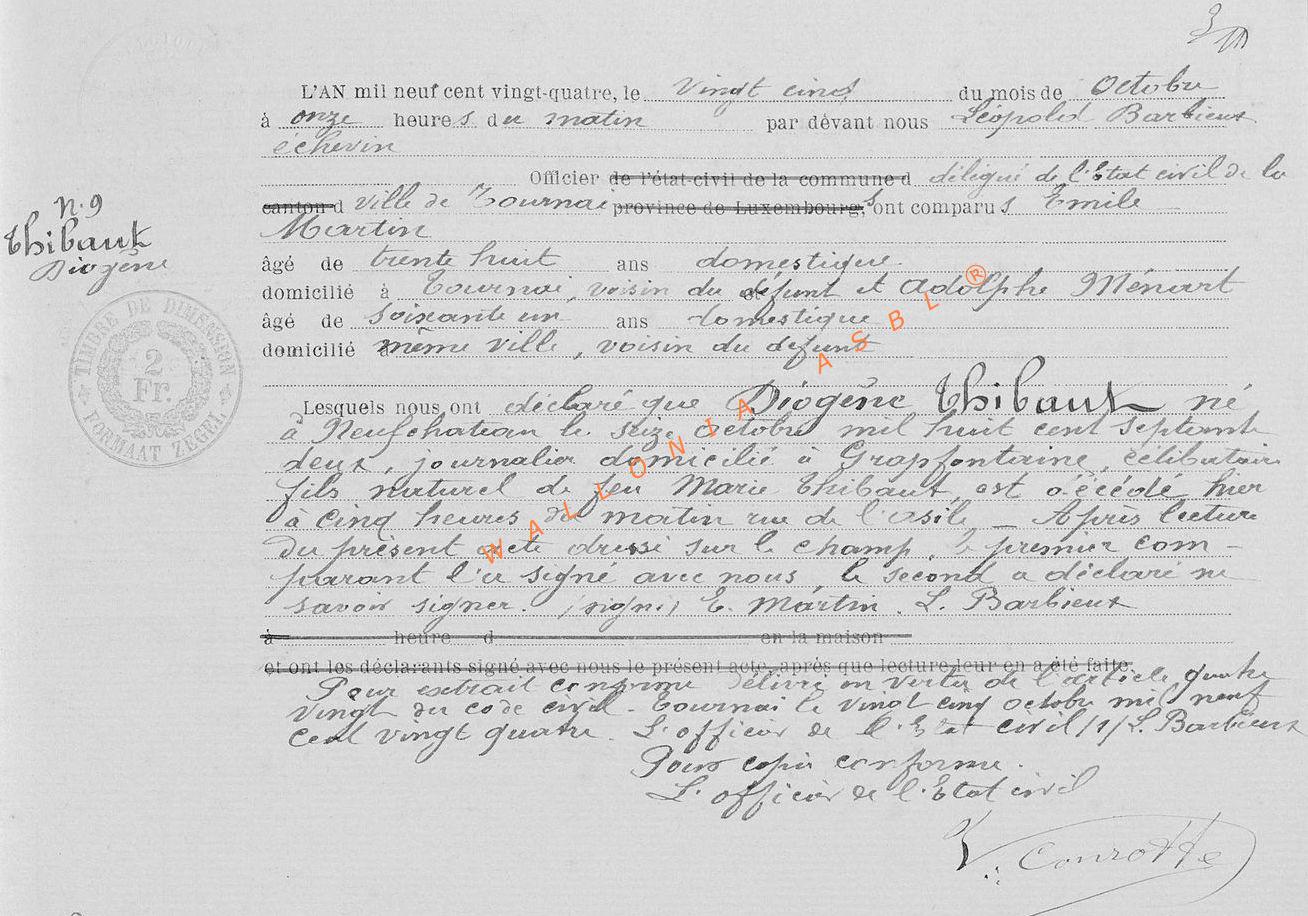 L'AN mil neuf cent vingt-quatre, le vingt cinq du mois de Octobre
à onze heures du matin par dévant nous Léopold Barbieux
échevin
Officier de l'état-civil de la commune d délégué de l'Etat civil de la
canton d ville de Tournai province de Luxembourg, ont comparus Emile
Martin
N.9
Thibaut
Diogène
âgé de trente huit ans domestique
domicilié à Tournai, voisin du défunt et Adolphe Ménart
âgé de soixante un ans domestique
domicilié même ville, voisin du defunt
TIMBRE DE DIMENSION
2
Fr.
FORMAAT ZEGEL
Lesquels nous ont déclaré que Diogène Thibaut né
à Neufchateau le seize octobre mil huit cent septante
deux, journalier domicilié à Grapfontaine, célibataire
fils naturel de feu Marie Thibaut, est décédé hier
à cinq heures du matin rue de l'asile _ Après lecture
du présent acte dressé sur le champ, le premier com-
parant l'a signé avec nous, le second a déclaré ne
savoir signer. (signé) E. Martin. L. Barbieux
à heure d en la maison
et ont les déclarants signé avec nous le présent acte, après que lecture leur en a été faite.
Pour extrait conforme délivré en vertu de l'article quatre
vingt du code civil - Tournai le vingt cinq octobre mil neuf
cent vingt quatre. L'officier de l'Etat civil /s/ L. Barbieux
Pour copie conforme.
L'officier de l'Etat civil
V. Conrotte
WALLONIA ASBL ®